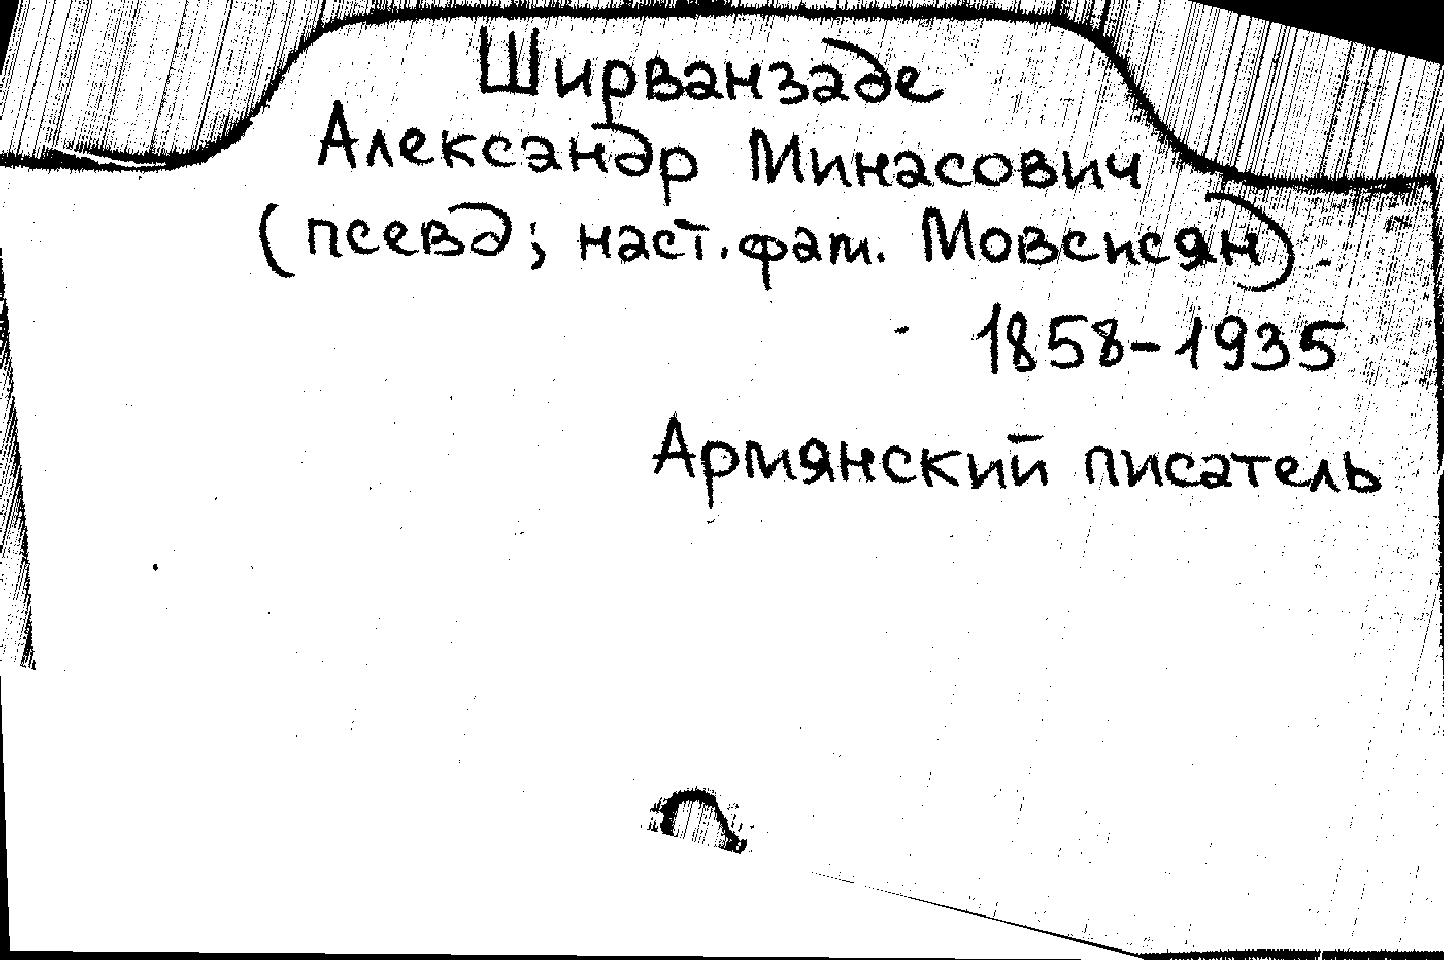 Ширванзаде
Александр Минасович
(псевд; наст. фам. Мовсисян)
1858-1935
Армянский писатель